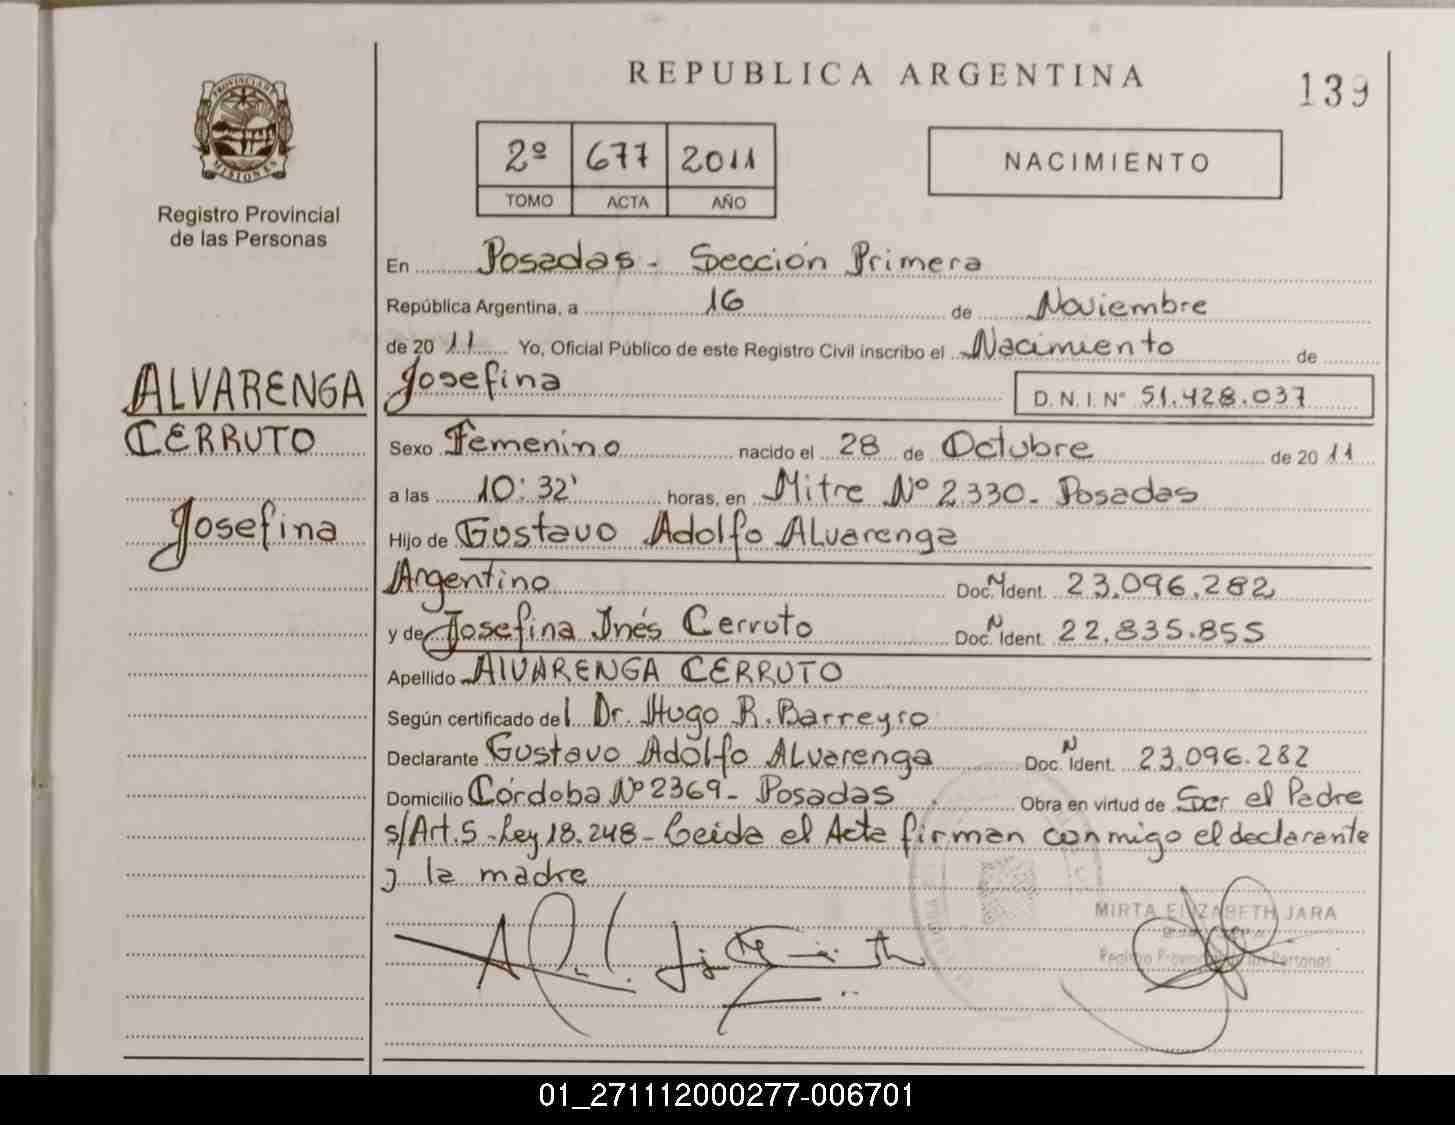 REPUBLICA ARGENTINA
139
PROVINCIA DE
MISIONES
Registro Provincial
de las Personas
2º 677 2011
TOMO ACTA AÑO
NACIMIENTO
En Posadas - Sección Primera
República Argentina, a 16 de Noviembre
de 2011 Yo, Oficial Público de este Registro Civil inscribo el Nacimiento de
ALVARENGA
CERRUTO
Josefina
Josefina
D.N.I. Nº 51.428.037
Sexo Femenino nacido el 28 de Octubre de 2011
a las 10:32' horas, en Mitre Nº 2330 - Posadas
Hijo de Gustavo Adolfo Alvarenga
Argentino Doc. N Ident. 23.096.282
y de Josefina Inés Cerruto Doc. N Ident. 22.835.855
Apellido AlVARENGA CERRUTO
Según certificado del Dr. Hugo R. Barreyro
Declarante Gustavo Adolfo ALvarenga Doc. N Ident. 23.096.282
Domicilio Córdoba Nº 2369 - Posadas Obra en virtud de Ser el Padre
s/Art. 5 - Ley 18.248 - Leida el Acta firman conmigo el declarante
y la madre
MIRTA ELIZABETH JARA
Registro Provincial de las Personas
01_271112000277-006701